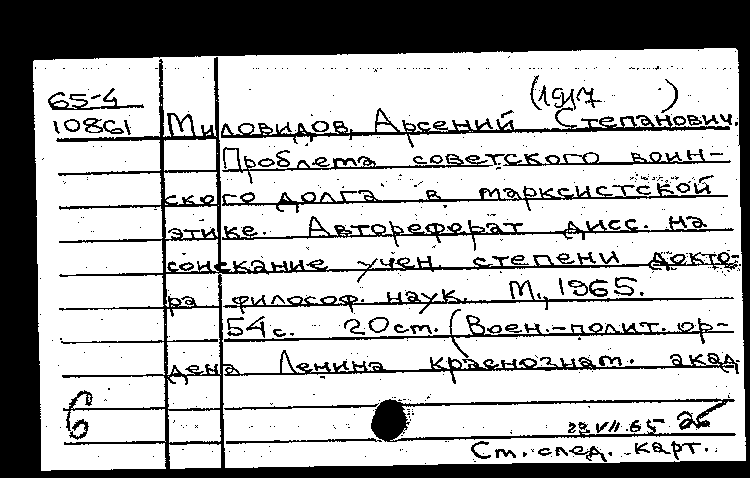 65-4
10861
(1917 )
Миловидов, Арсений Степанович.
Проблема советского воин-
ского долга в марксистской
этике. Автореферат дисс. на
соискание учен. степени докто-
ра философ. наук. М., 1965.
54 с. 20 см. (Воен.-полит. ор-
дена Ленина краснознам. акад.
6
22 VII.65
См. след. карт.